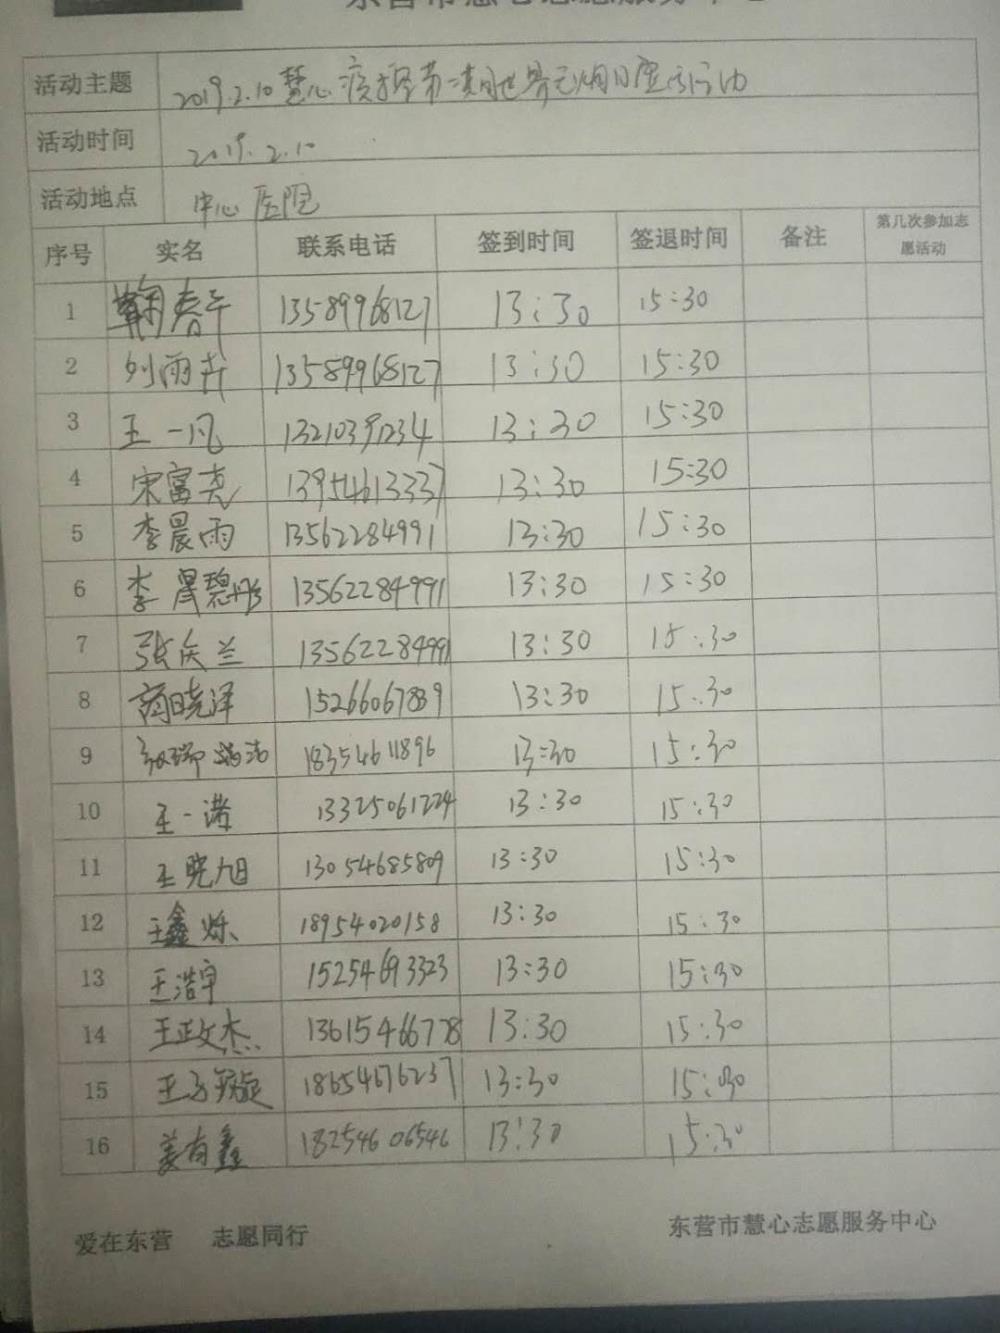 东营市慧心志愿服务中心
活动主题 2019.2.10慧心
活动时间 2019.2.10
活动地点 中心医院
序号 实名 联系电话 签到时间 签退时间 备注 第几次参加志愿活动
1 13589968127 13:30 15:30
2 刘雨卉 13589968127 13:30 15:30
3 王一凡 13210391234 13:30 15:30
4 宋富尧 13954613337 13:30 15:30
5 李晨雨 13562284991 13:30 15:30
6 李 碧彤 13562284991 13:30 15:30
7 张庆兰 13562284991 13:30 15:30
8 商晓泽 15266067889 13:30 15:30
9 18354611896 13:30 15:30
10 王一诺 13325061224 13:30 15:30
11 王晓旭 13054685809 13:30 15:30
12 王鑫烁 18954020158 13:30 15:30
13 王浩宇 15254693323 13:30 15:30
14 王政杰 13615466778 13:30 15:30
15 王子 18654676237 13:30 15:30
16 姜有鑫 18254606546 13:30 15:30
爱在东营 志愿同行 东营市慧心志愿服务中心